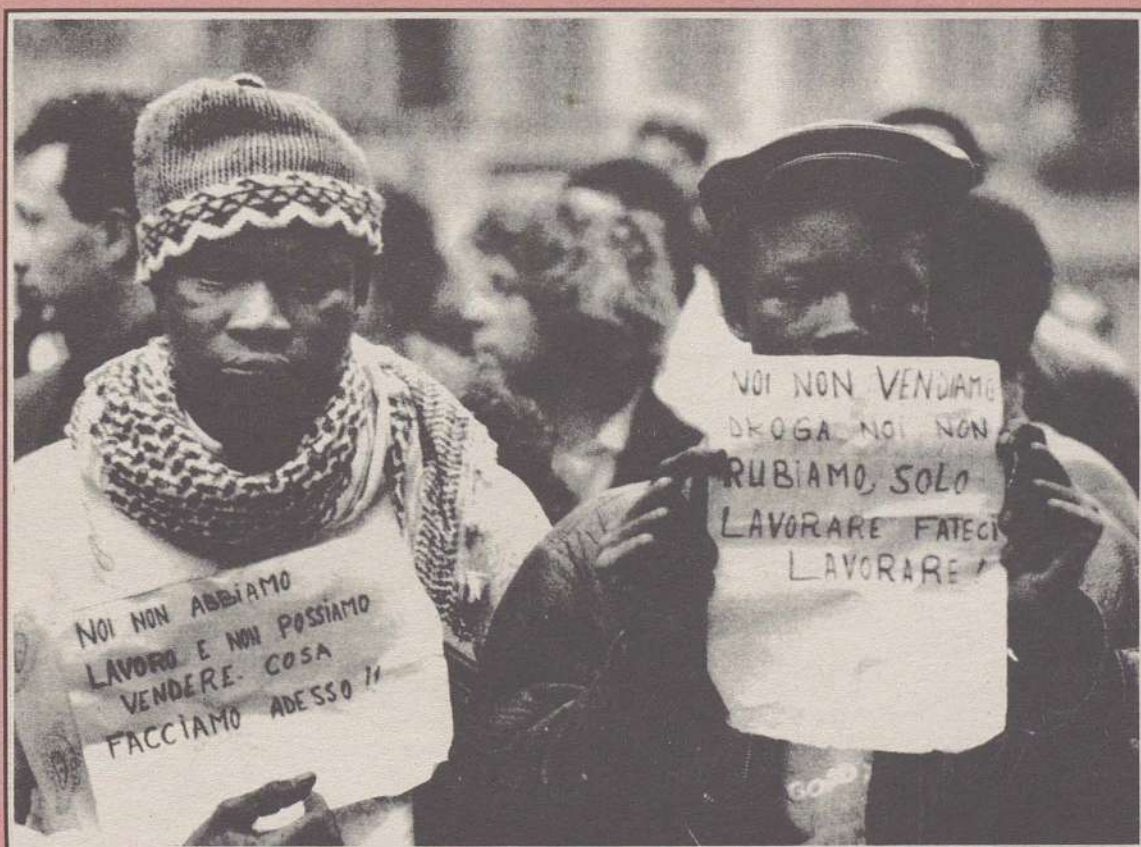 NOI NON ABBIAMO
LAVORO E NON POSSIAMO
VENDERE. COSA
FACCIAMO ADESSO!!
NOI NON VENDIAMO
DROGA NOI NON
RUBIAMO, SOLO
LAVORARE FATECI
LAVORARE!